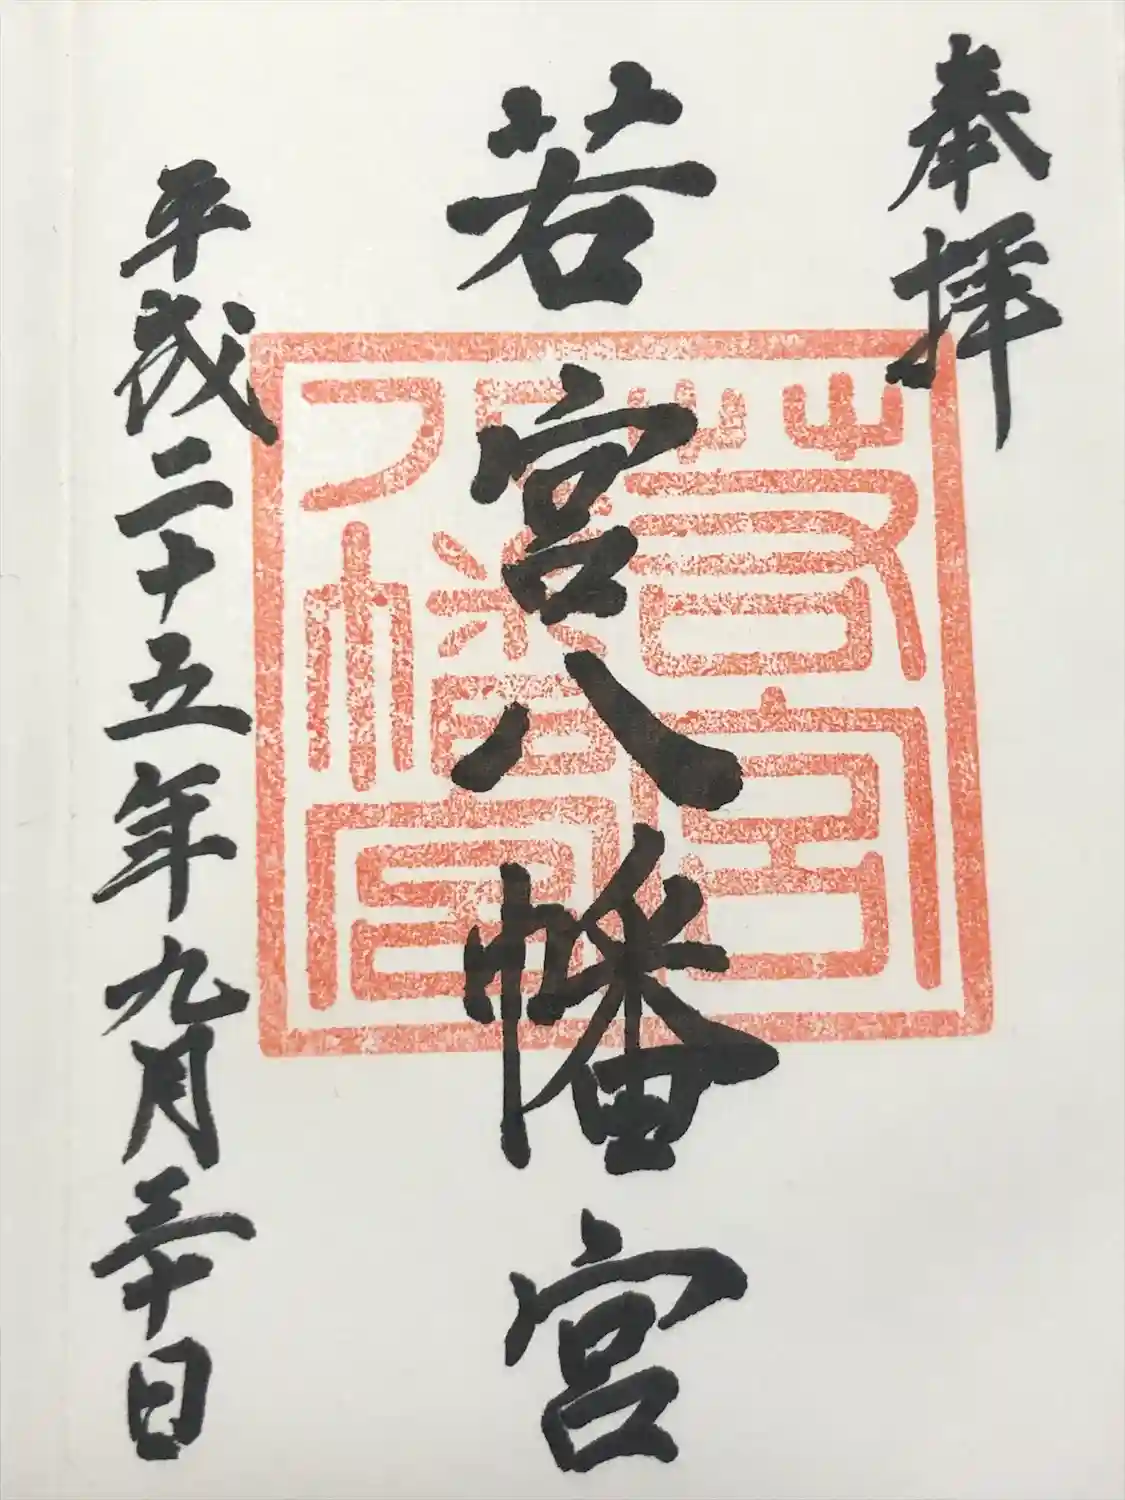 奉拝
若宮八幡宮
平成二十五年九月三十日
若宮
八幡宮